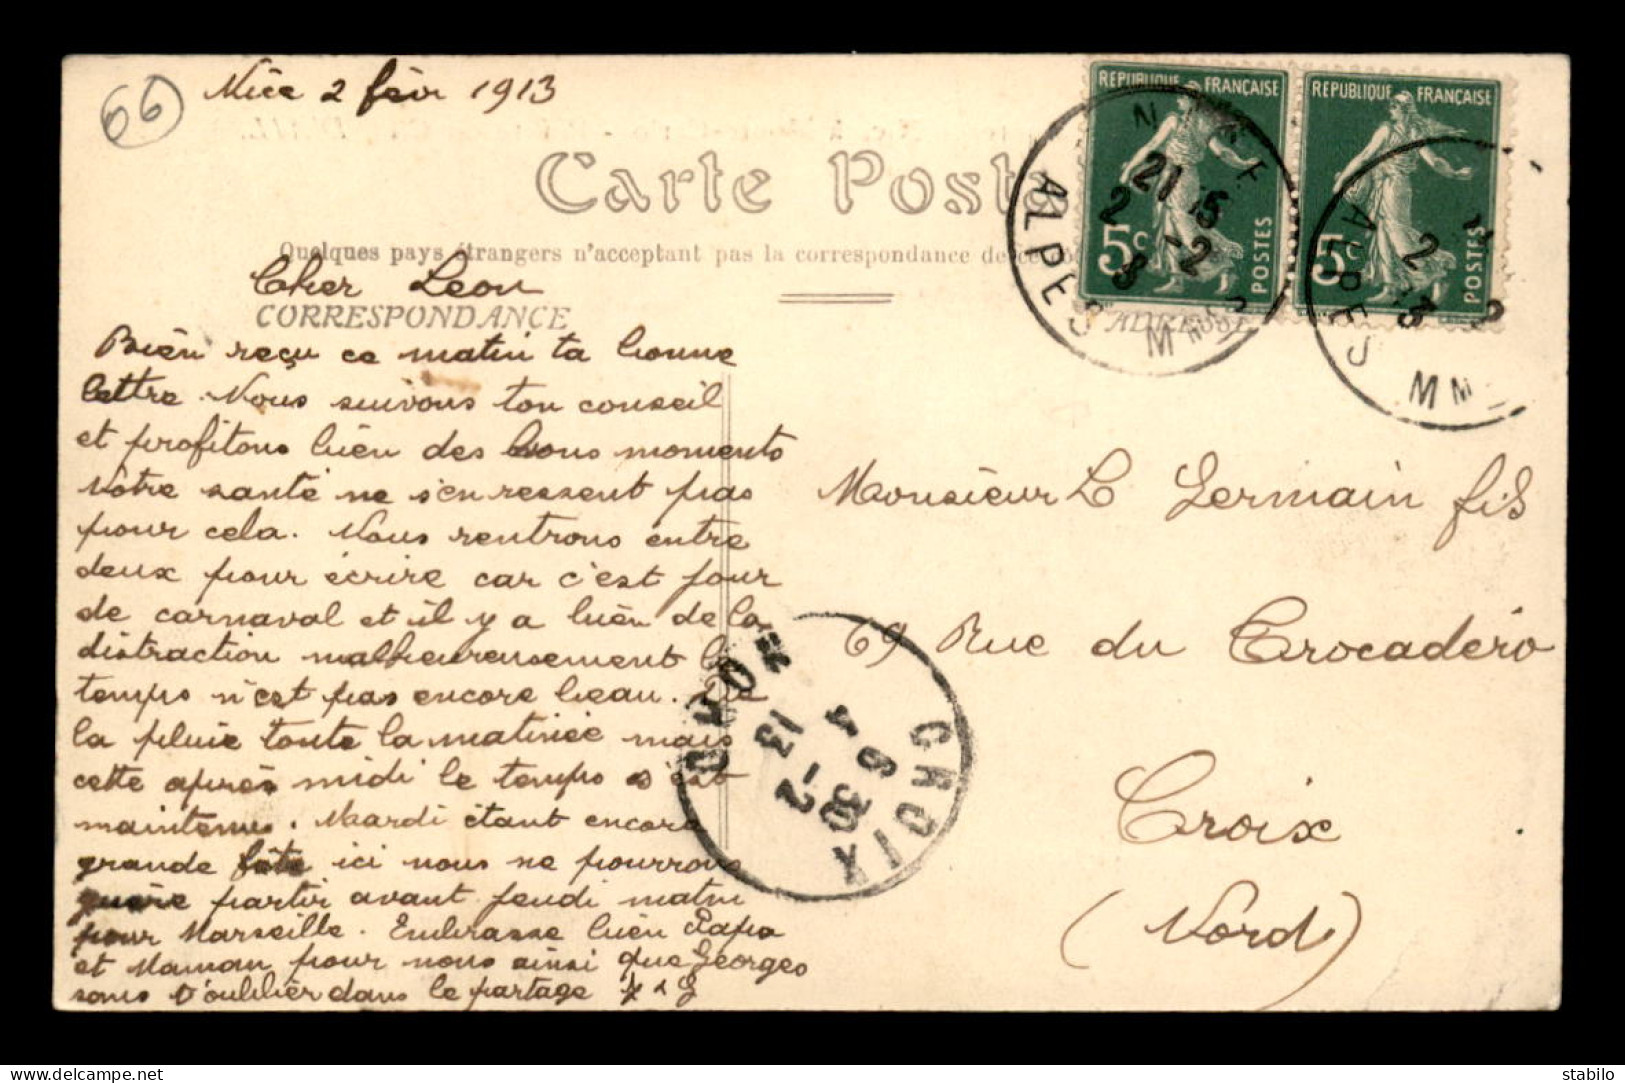 66
Nice 2 févr 1913
Carte Posta
Quelques pays étrangers n'acceptant pas la correspondance de ce côté
Cher Léon
CORRESPONDANCE
ADRESSE
Bien reçu ce matin ta bonne
lettre. Nous suivons ton conseil
et profitons bien des bons moments
Notre santé ne s'en ressent pas
pour cela. Nous rentrons entre
deux pour écrire car c'est jour
de carnaval et il y a bien de la
distraction malheureusement le
temps n'est pas encore beau. De
la pluie toute la matinée mais
cette après midi le temps s'est
maintenu. Mardi étant encore
grande fête ici nous ne pourrons
guère partir avant jeudi matin
pour Marseille. Embrasse bien Papa
et Maman pour nous ainsi que Georges
sans t'oublier dans le partage
REPUBLIQUE FRANÇAISE
5c POSTES
REPUBLIQUE FRANÇAISE
5c POSTES
NICE
21 15
2 -2
ALPES MMES
2
13
ALPES MM
Monsieur L Germain fils
69 Rue du Trocadéro
Croix
(Nord)
CROIX
NORD
6 30
4 -2
13
delcampe.net
stabilo